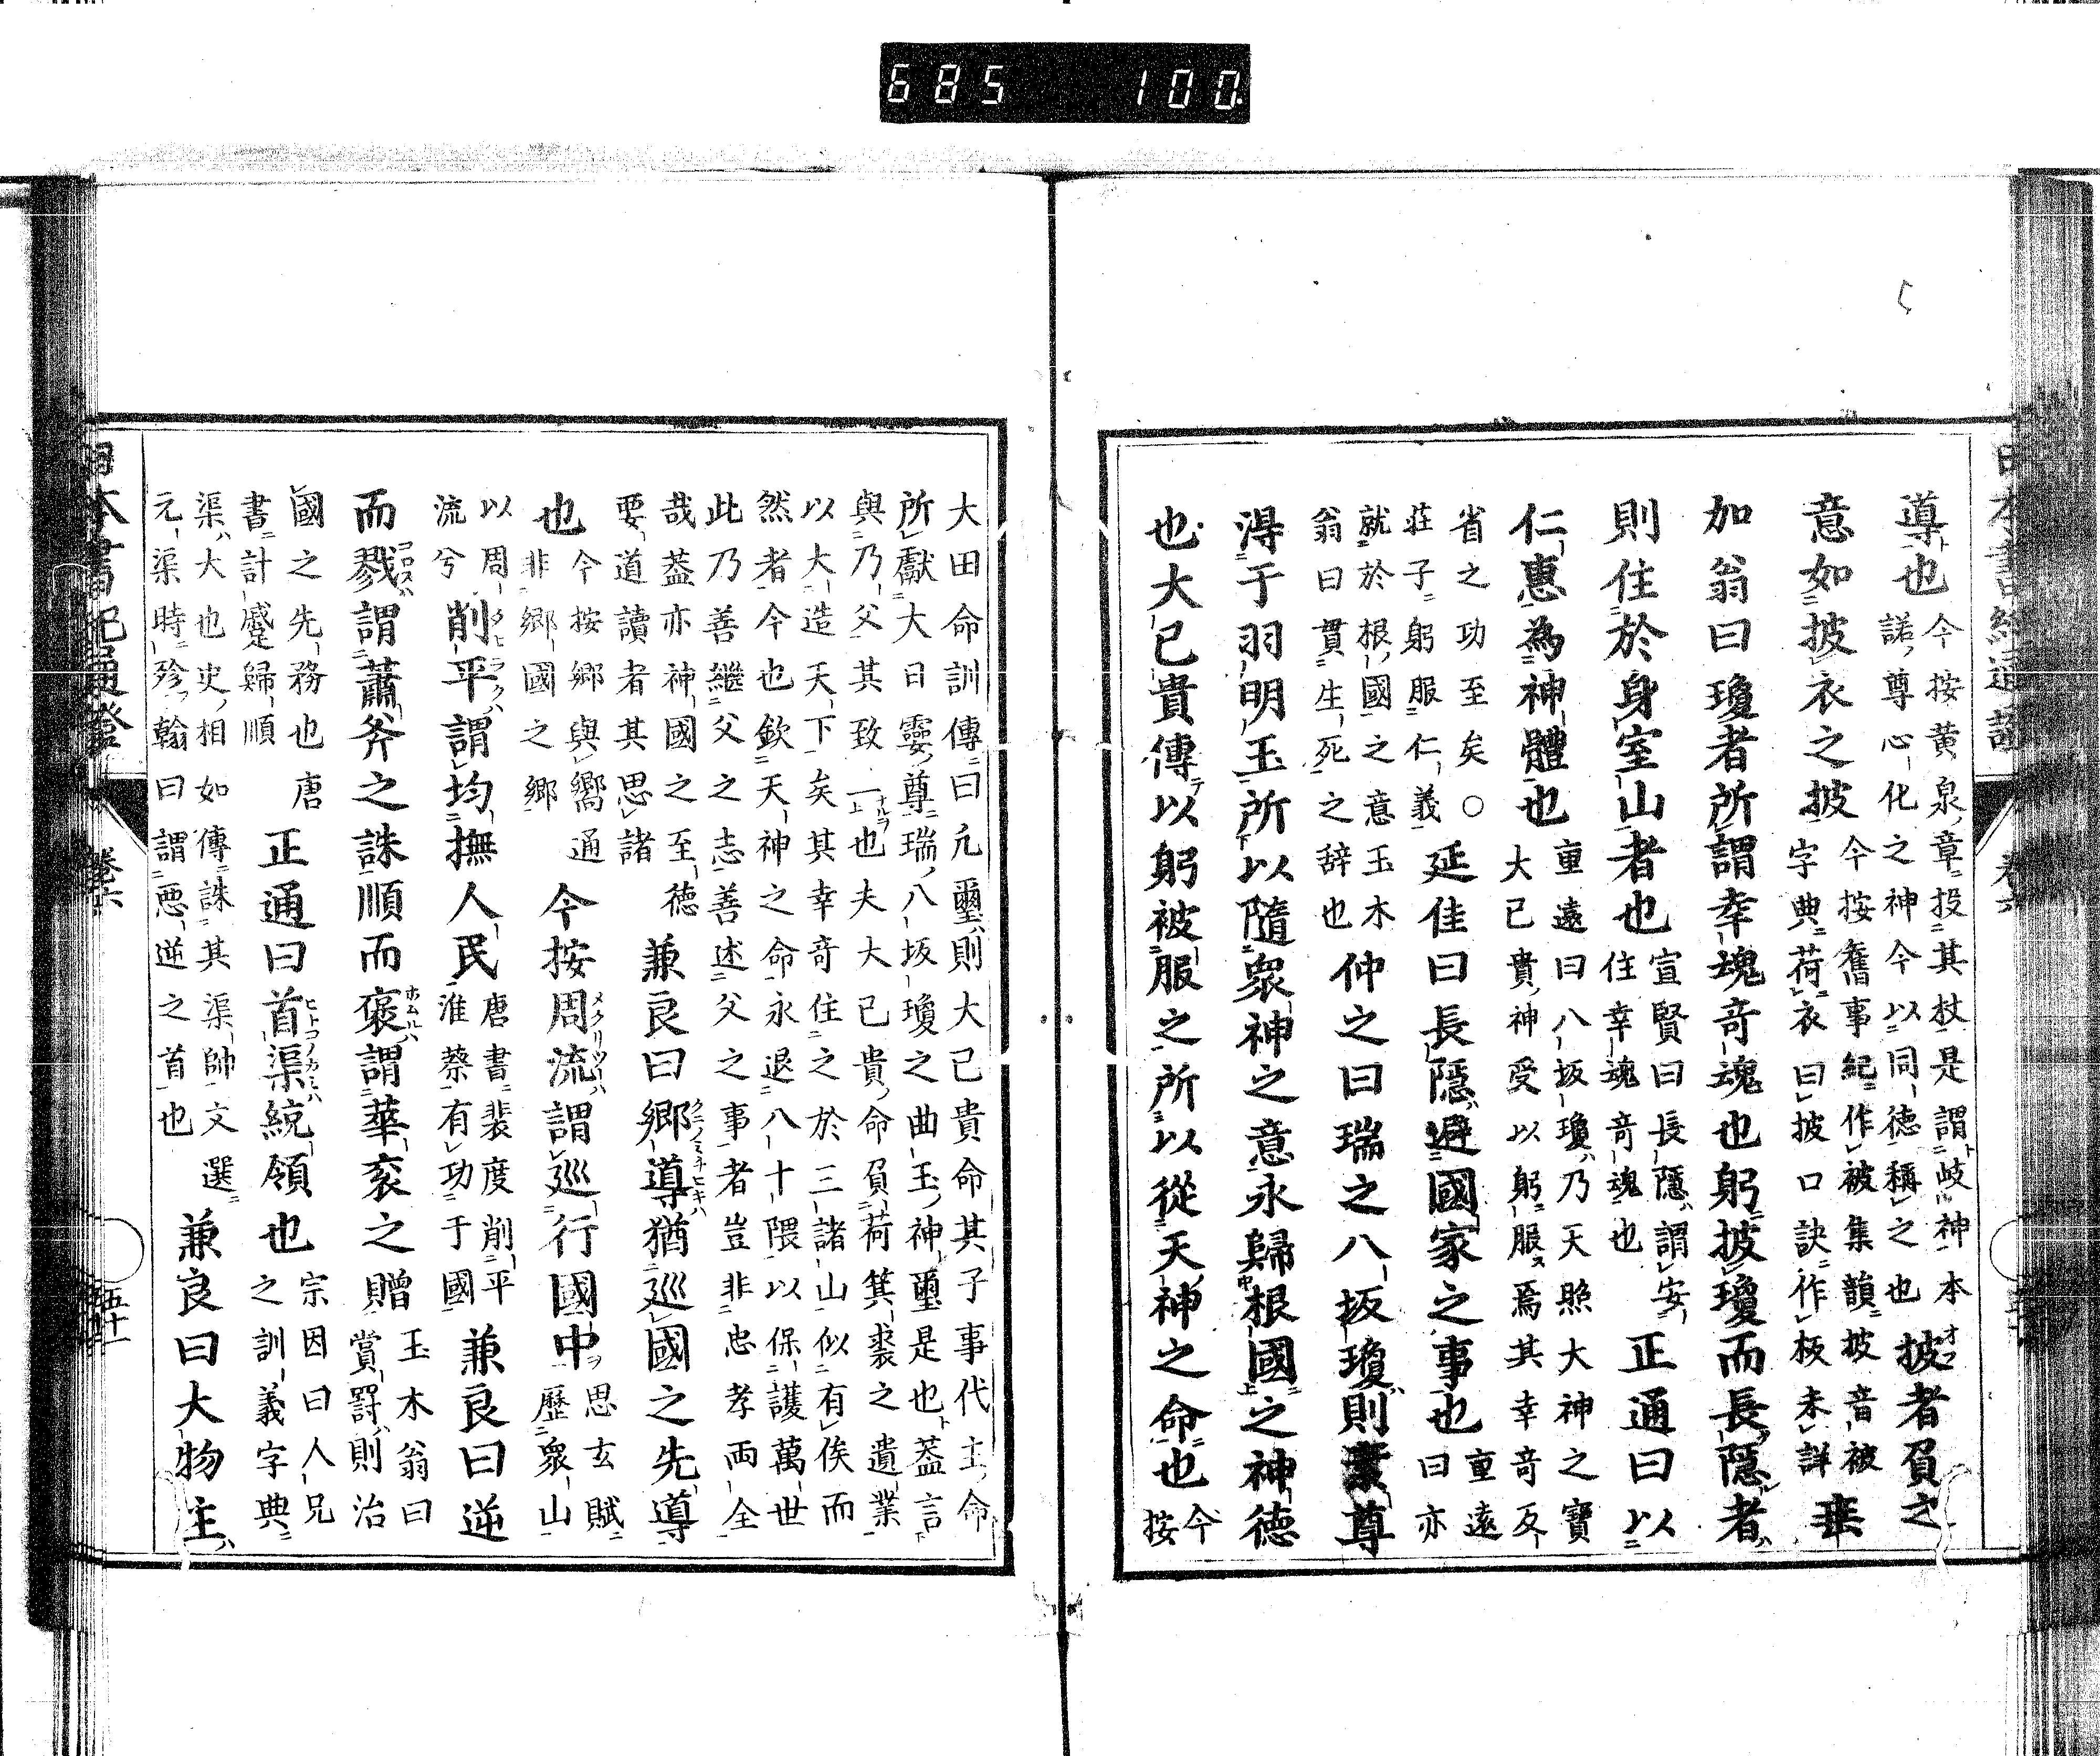 685 100
導也今按黃泉章投其杖是謂岐神本
諾尊心化之神今以同德稱之也披者負之
意如披衣之披今按舊事紀作被集韻披音被
字典荷衣曰披口訣作板未詳垂
加翁曰瓊者所謂幸魂奇魂也躬披瓊而長隱者
則住於身室山者也宣賢曰長隱謂安
住幸魂奇魂也正通曰以
仁惠為神體也重遠曰八坂瓊乃天照大神之寶
大己貴神受以躬服焉其幸奇反
省之功至矣○延佳曰長隱避國家之事也重遠
曰亦
莊子躬服仁義
就於根國之意玉木
翁曰貫生死之辞也仲之曰瑞之八坂瓊則 尊
淂于羽明玉所以隨衆神之意永歸根國之神德
也大己貴傳以躬被服之所以從天神之命也今
按
大田命訓傳曰凢璽則大己貴命其子事代主命
所獻大日孁尊瑞八坂瓊之曲玉神璽是也葢言
與乃父其致一也夫大己貴命負荷箕裘之遺業
以大造天下矣其幸奇住之於三諸山似有俟而
然者今也欽天神之命永退八十隈以保護萬世
此乃善繼父之志善述父之事者豈非忠孝兩全
哉葢亦神國之至德
要道讀者其思諸兼良曰鄉導猶巡國之先導
也今按鄉與嚮通
非鄉國之鄉今按周流謂巡行國中思玄賦
歷衆山
以周
流兮削平謂均撫人民唐書裴度削平
淮蔡有功于國兼良曰逆
而戮謂蕭斧之誅順而褒謂華衮之贈玉木翁曰
賞罸則治
國之先務也唐
書計蹙歸順正通曰首渠統領也宗因曰人兄
之訓義字典
渠大也史相如傳誅其渠帥文選
元渠時殄翰曰謂惡逆之首也兼良曰大物主
卷六
五十一